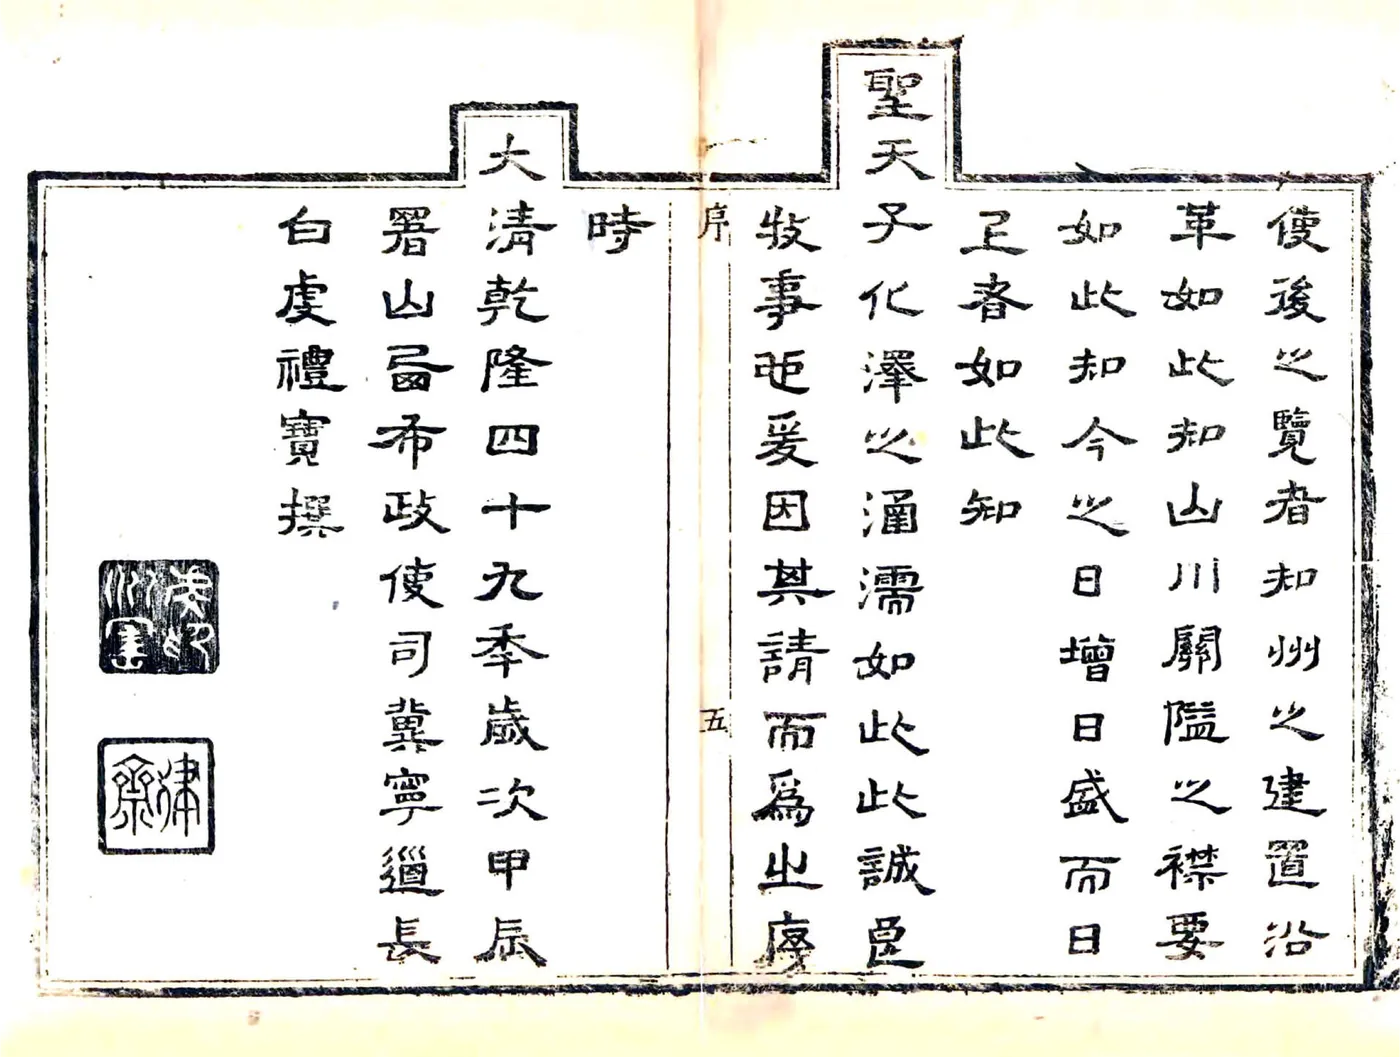 使後之覽者知州之建置沿
革如此知山川關隘之襟要
如此知今之日增日盛而日
者如此知
聖天子化澤之涵濡如此此誠
牧事也爰因其請而爲之序
序
五
時
大清乾隆四十九季歲次甲辰
署山西布政使司冀寧道長
白虔禮寶撰
律齋